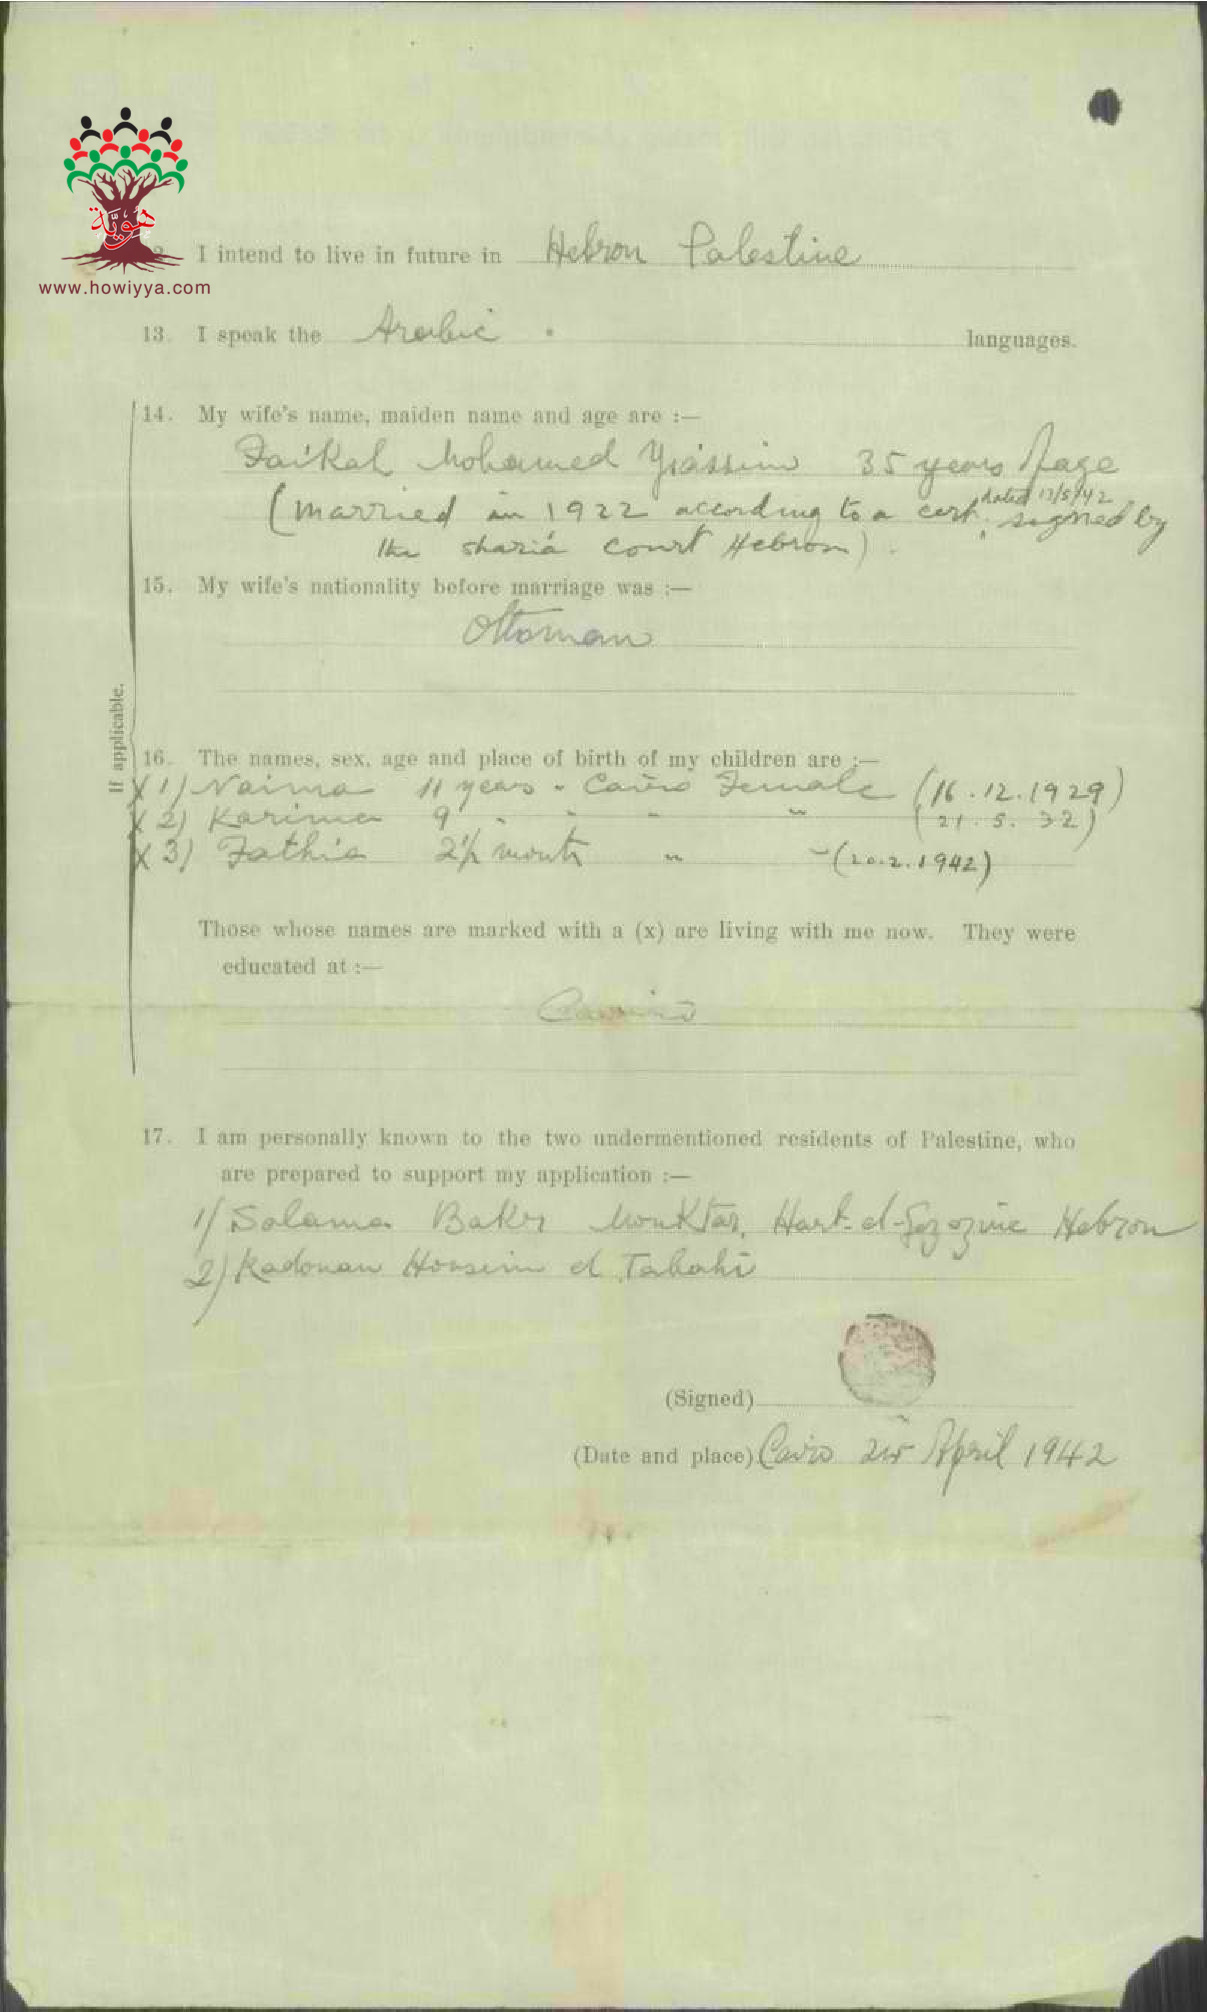 هوية
www.howiyya.com
I intend to live in future in Hebron Palestine
13. I speak the Arabic . languages.
14. My wife's name, maiden name and age are :—
Faikah Mohamed Yiassim 35 years of age
dated 12/5/42
(married in 1922 according to a cert. signed by
the sharia court Hebron).
15. My wife's nationality before marriage was :—
Ottoman
If applicable.
16. The names, sex, age and place of birth of my children are :—
X 1) Naima 11 years - Cairo Female (16.12.1929)
X 2) Karima 9 " " " " (21.5.32)
X 3) Fathia 2½ month " " (20.2.1942)
Those whose names are marked with a (x) are living with me now. They were
educated at :—
17. I am personally known to the two undermentioned residents of Palestine, who
are prepared to support my application :—
1/ Salama Baker Mouktar, Hart-el- Hebron
2) Radouan Houssein el Tabahi
(Signed)
(Date and place) Cairo April 1942